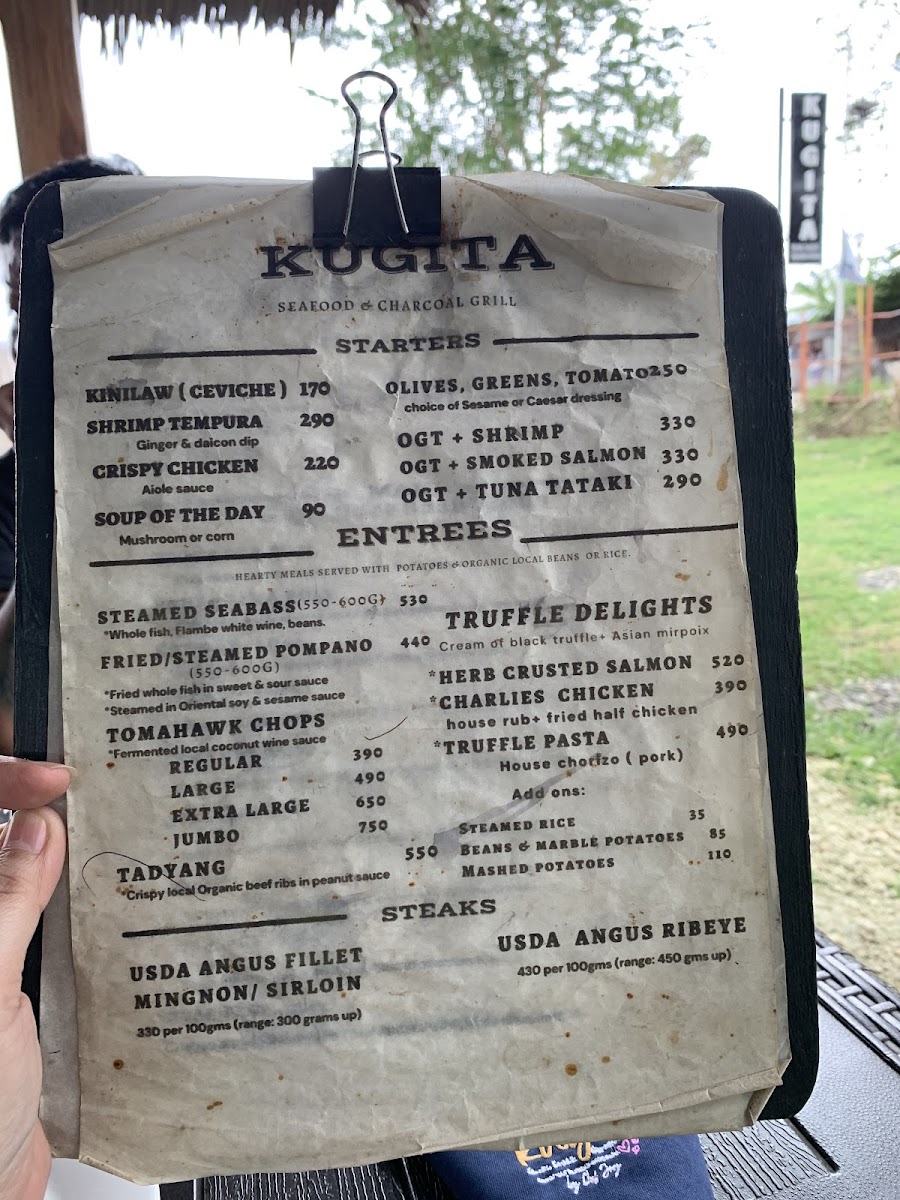 KUGITA
KUGITA
SEAFOOD & CHARCOAL GRILL
STARTERS
KINILAW ( CEVICHE ) 170
SHRIMP TEMPURA 290
Ginger & daicon dip
CRISPY CHICKEN 220
Aiole sauce
SOUP OF THE DAY 90
Mushroom or corn
OLIVES, GREENS, TOMATO 250
choice of Sesame or Caesar dressing
OGT + SHRIMP 330
OGT + SMOKED SALMON 330
OGT + TUNA TATAKI 290
ENTREES
HEARTY MEALS SERVED WITH POTATOES & ORGANIC LOCAL BEANS OR RICE.
STEAMED SEABASS(550-600G) 530
*Whole fish, Flambe white wine, beans.
FRIED/STEAMED POMPANO 440
(550-600G)
*Fried whole fish in sweet & sour sauce
*Steamed in Oriental soy & sesame sauce
TOMAHAWK CHOPS
*Fermented local coconut wine sauce
REGULAR 390
LARGE 490
EXTRA LARGE 650
JUMBO 750
TADYANG 550
*Crispy local Organic beef ribs in peanut sauce
TRUFFLE DELIGHTS
Cream of black truffle+ Asian mirpoix
*HERB CRUSTED SALMON 520
*CHARLIES CHICKEN 390
house rub+ fried half chicken
*TRUFFLE PASTA 490
House chorizo ( pork)
Add ons:
STEAMED RICE 35
BEANS & MARBLE POTATOES 85
MASHED POTATOES 110
STEAKS
USDA ANGUS FILLET
MINGNON/ SIRLOIN
330 per 100gms (range: 300 grams up)
USDA ANGUS RIBEYE
430 per 100gms (range: 450 gms up)